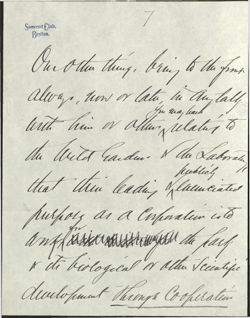 7
Somerset Club,
Boston.
One other thing, bring to the front
always, now or later, in any talk
you may have
with him or others, relative to
the Wild Gardens & the Laboratory
publicly
that their leading enunciated
purpose as a Corporation is to
the park
& its biological or other Scientific
development through Cooperation